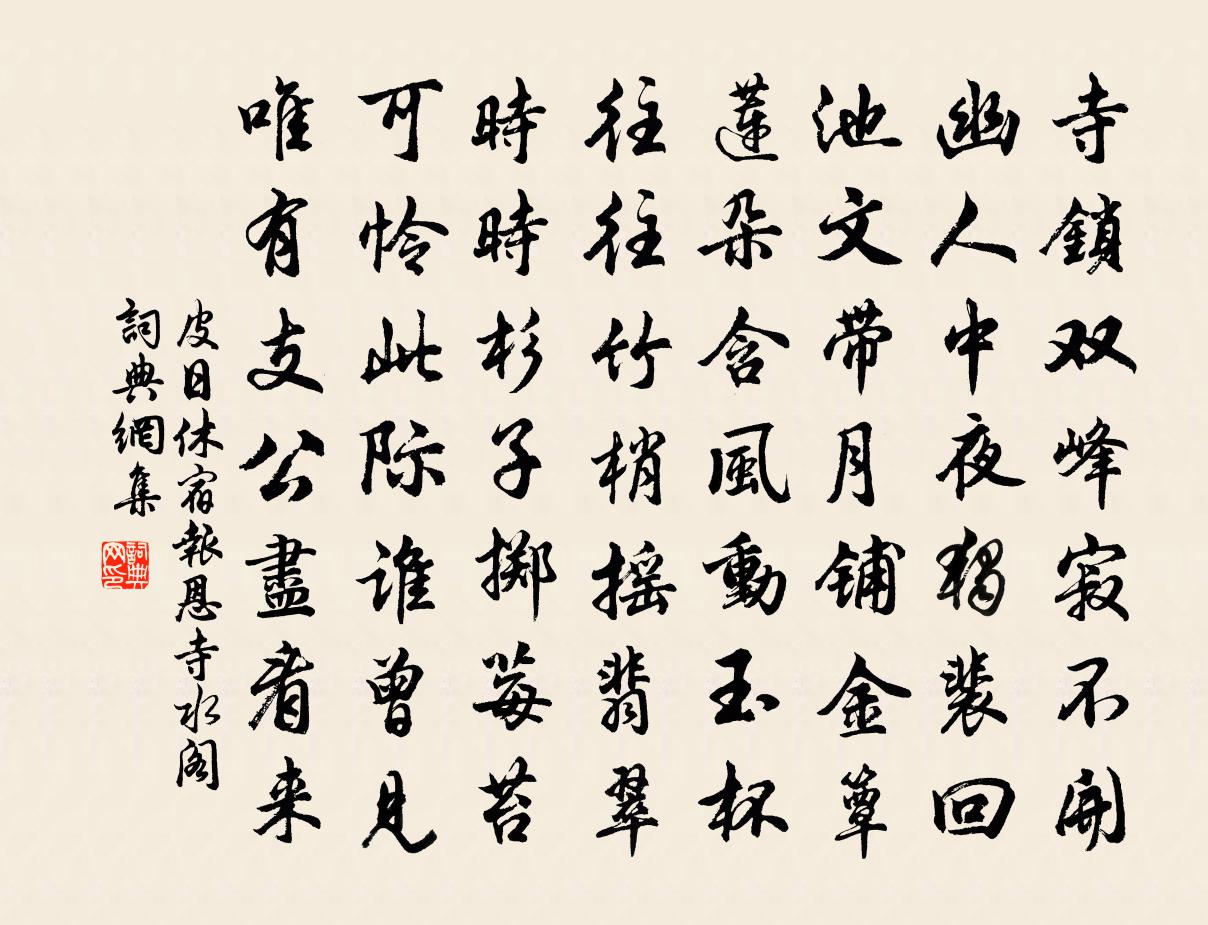 寺鎖双峰寂不開
幽人中夜獨裴回
池文帶月铺金簟
蓮朵含風動玉杯
往往竹梢摇翡翠
時時杉子掷莓苔
可怜此际谁曾見
唯有支公盡看来
皮日休宿報恩寺水阁
詞典網集
詞典网印